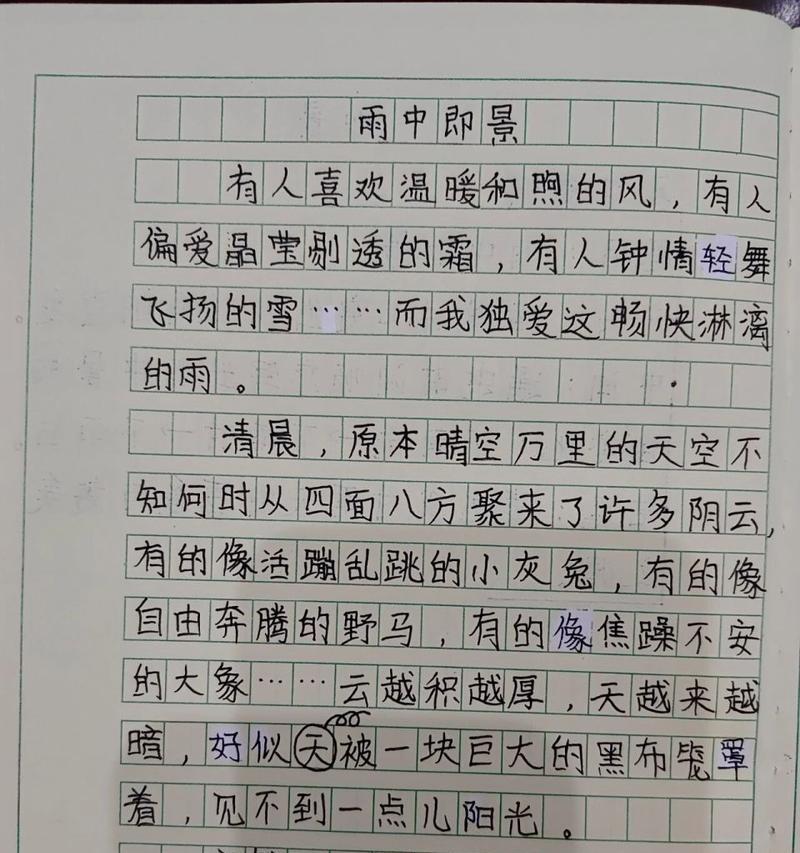 雨中即景
有人喜欢温暖和煦的风，有人
偏爱晶莹剔透的霜，有人钟情轻舞
飞扬的雪……而我独爱这畅快淋漓
的雨。
清晨，原本晴空万里的天空不
知何时从四面八方聚来了许多阴云，
有的像活蹦乱跳的小灰兔，有的像
自由奔腾的野马，有的像焦躁不安
的大象……云越积越厚，天越来越
暗，好似天被一块巨大的黑布笼罩
着，见不到一点儿阳光。